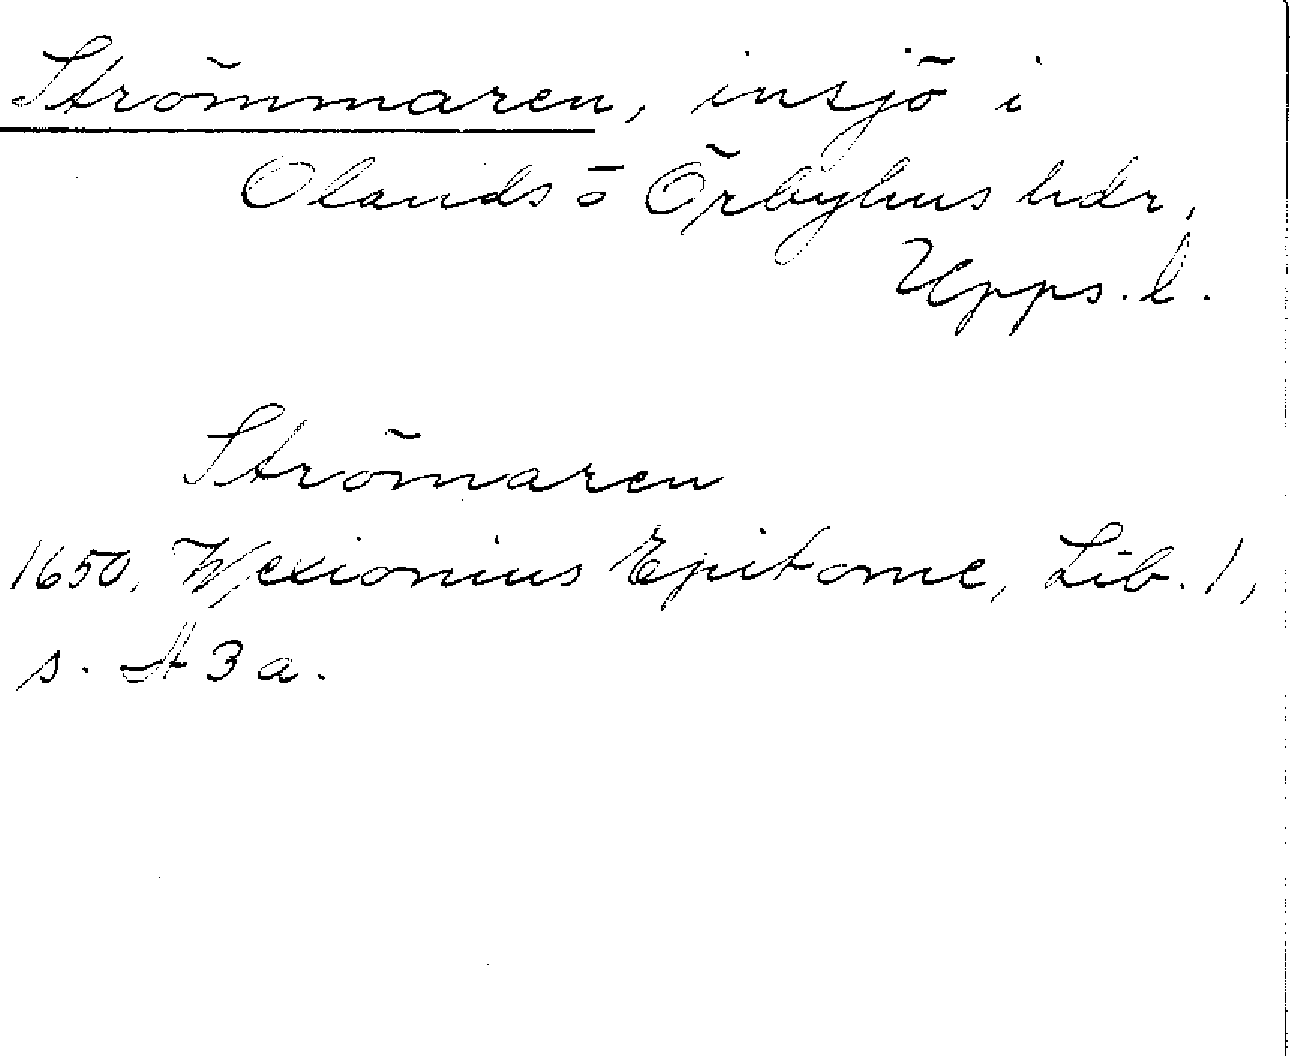 Strömmaren, insjö i
Olands o Örbyhus hdr,
Upps. l.
Strömaren
1650, Wexionius Epitome, Lib. 1,
s. A 3 a.